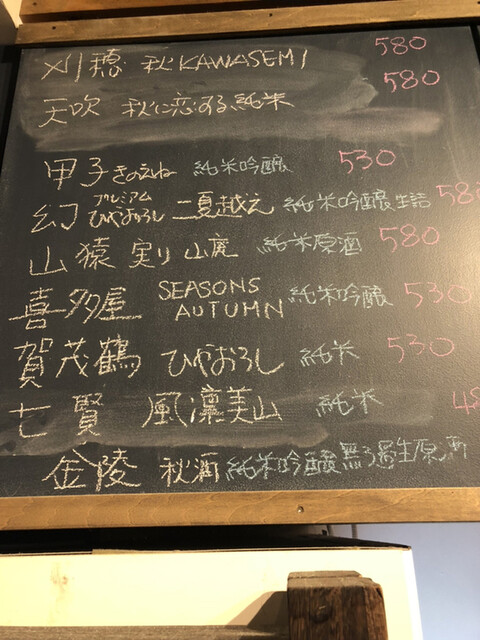 刈穂 秋KAWASEMI 580
天吹 秋に恋する純米 580
甲子 きのえね 純米吟醸 530
幻 プレミアム ひやおろし 二夏越え 純米吟醸生詰 580
山猿 実り 山廃 純米原酒 580
喜多屋 SEASONS AUTUMN 純米吟醸 530
賀茂鶴 ひやおろし 純米 530
七賢 風凛美山 純米
金陵 秋酒 純米吟醸無ろ過生原酒